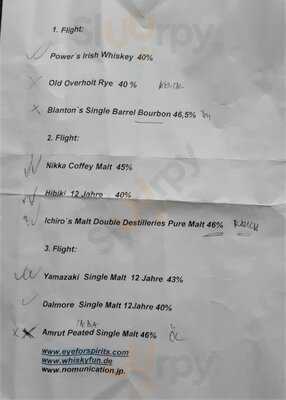 1. Flight:
Power's Irish Whiskey 40%
Old Overholt Rye 40 %
Blanton's Single Barrel Bourbon 46,5%
2. Flight:
Nikka Coffey Malt 45%
Hibiki 12 Jahre 40%
Ichiro's Malt Double Destilleries Pure Malt 46%
3. Flight:
Yamazaki Single Malt 12 Jahre 43%
Dalmore Single Malt 12Jahre 40%
Amrut Peated Single Malt 46%
www.eyeforspirits.com
www.whiskyfun.de
www.nomunication.jp.